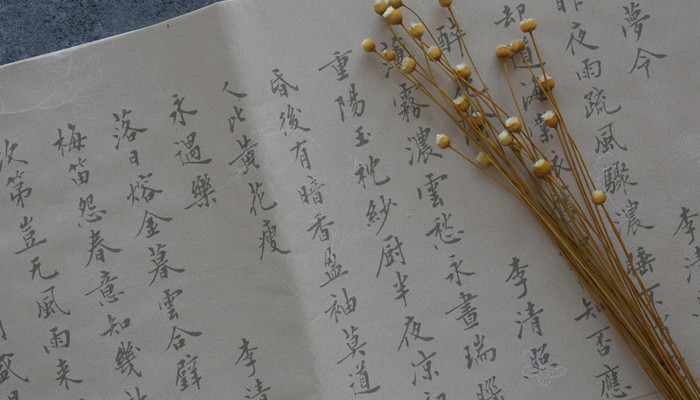 夢令 李清
昨夜雨疏風驟濃睡不
却道海棠依舊 知否應
醉 李清照
薄霧濃雲愁永晝瑞腦
重陽玉枕紗厨半夜凉初
昏後有暗香盈袖莫道
人比黄花瘦
永遇樂 李清
落日熔金暮雲合璧
梅笛怨春意知幾
次第豈无風雨来
盛